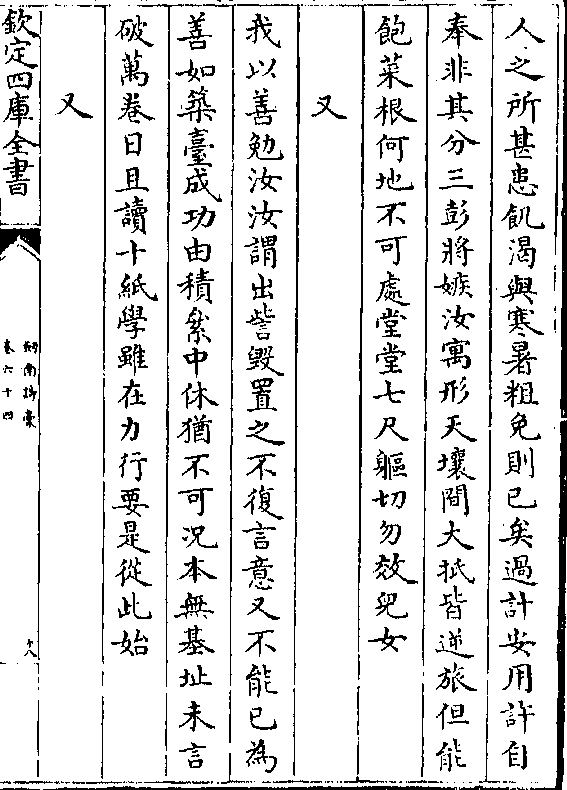 人之所甚患飢渴與寒暑粗免則已矣過計安用許自
奉非其分三彭將嫉汝寓形天壤間大抵皆逆旅但能
飽菜根何地不可處堂堂七尺軀切勿效兒女
又
我以善勉汝汝謂出訾毀置之不復言意又不能已為
善如築臺成功由積絫中休猶不可况本無基址未言
破萬卷日且讀十紙學雖在力行要是從此始
又
欽定四庫全書
劍南詩稾
卷六十四
十八